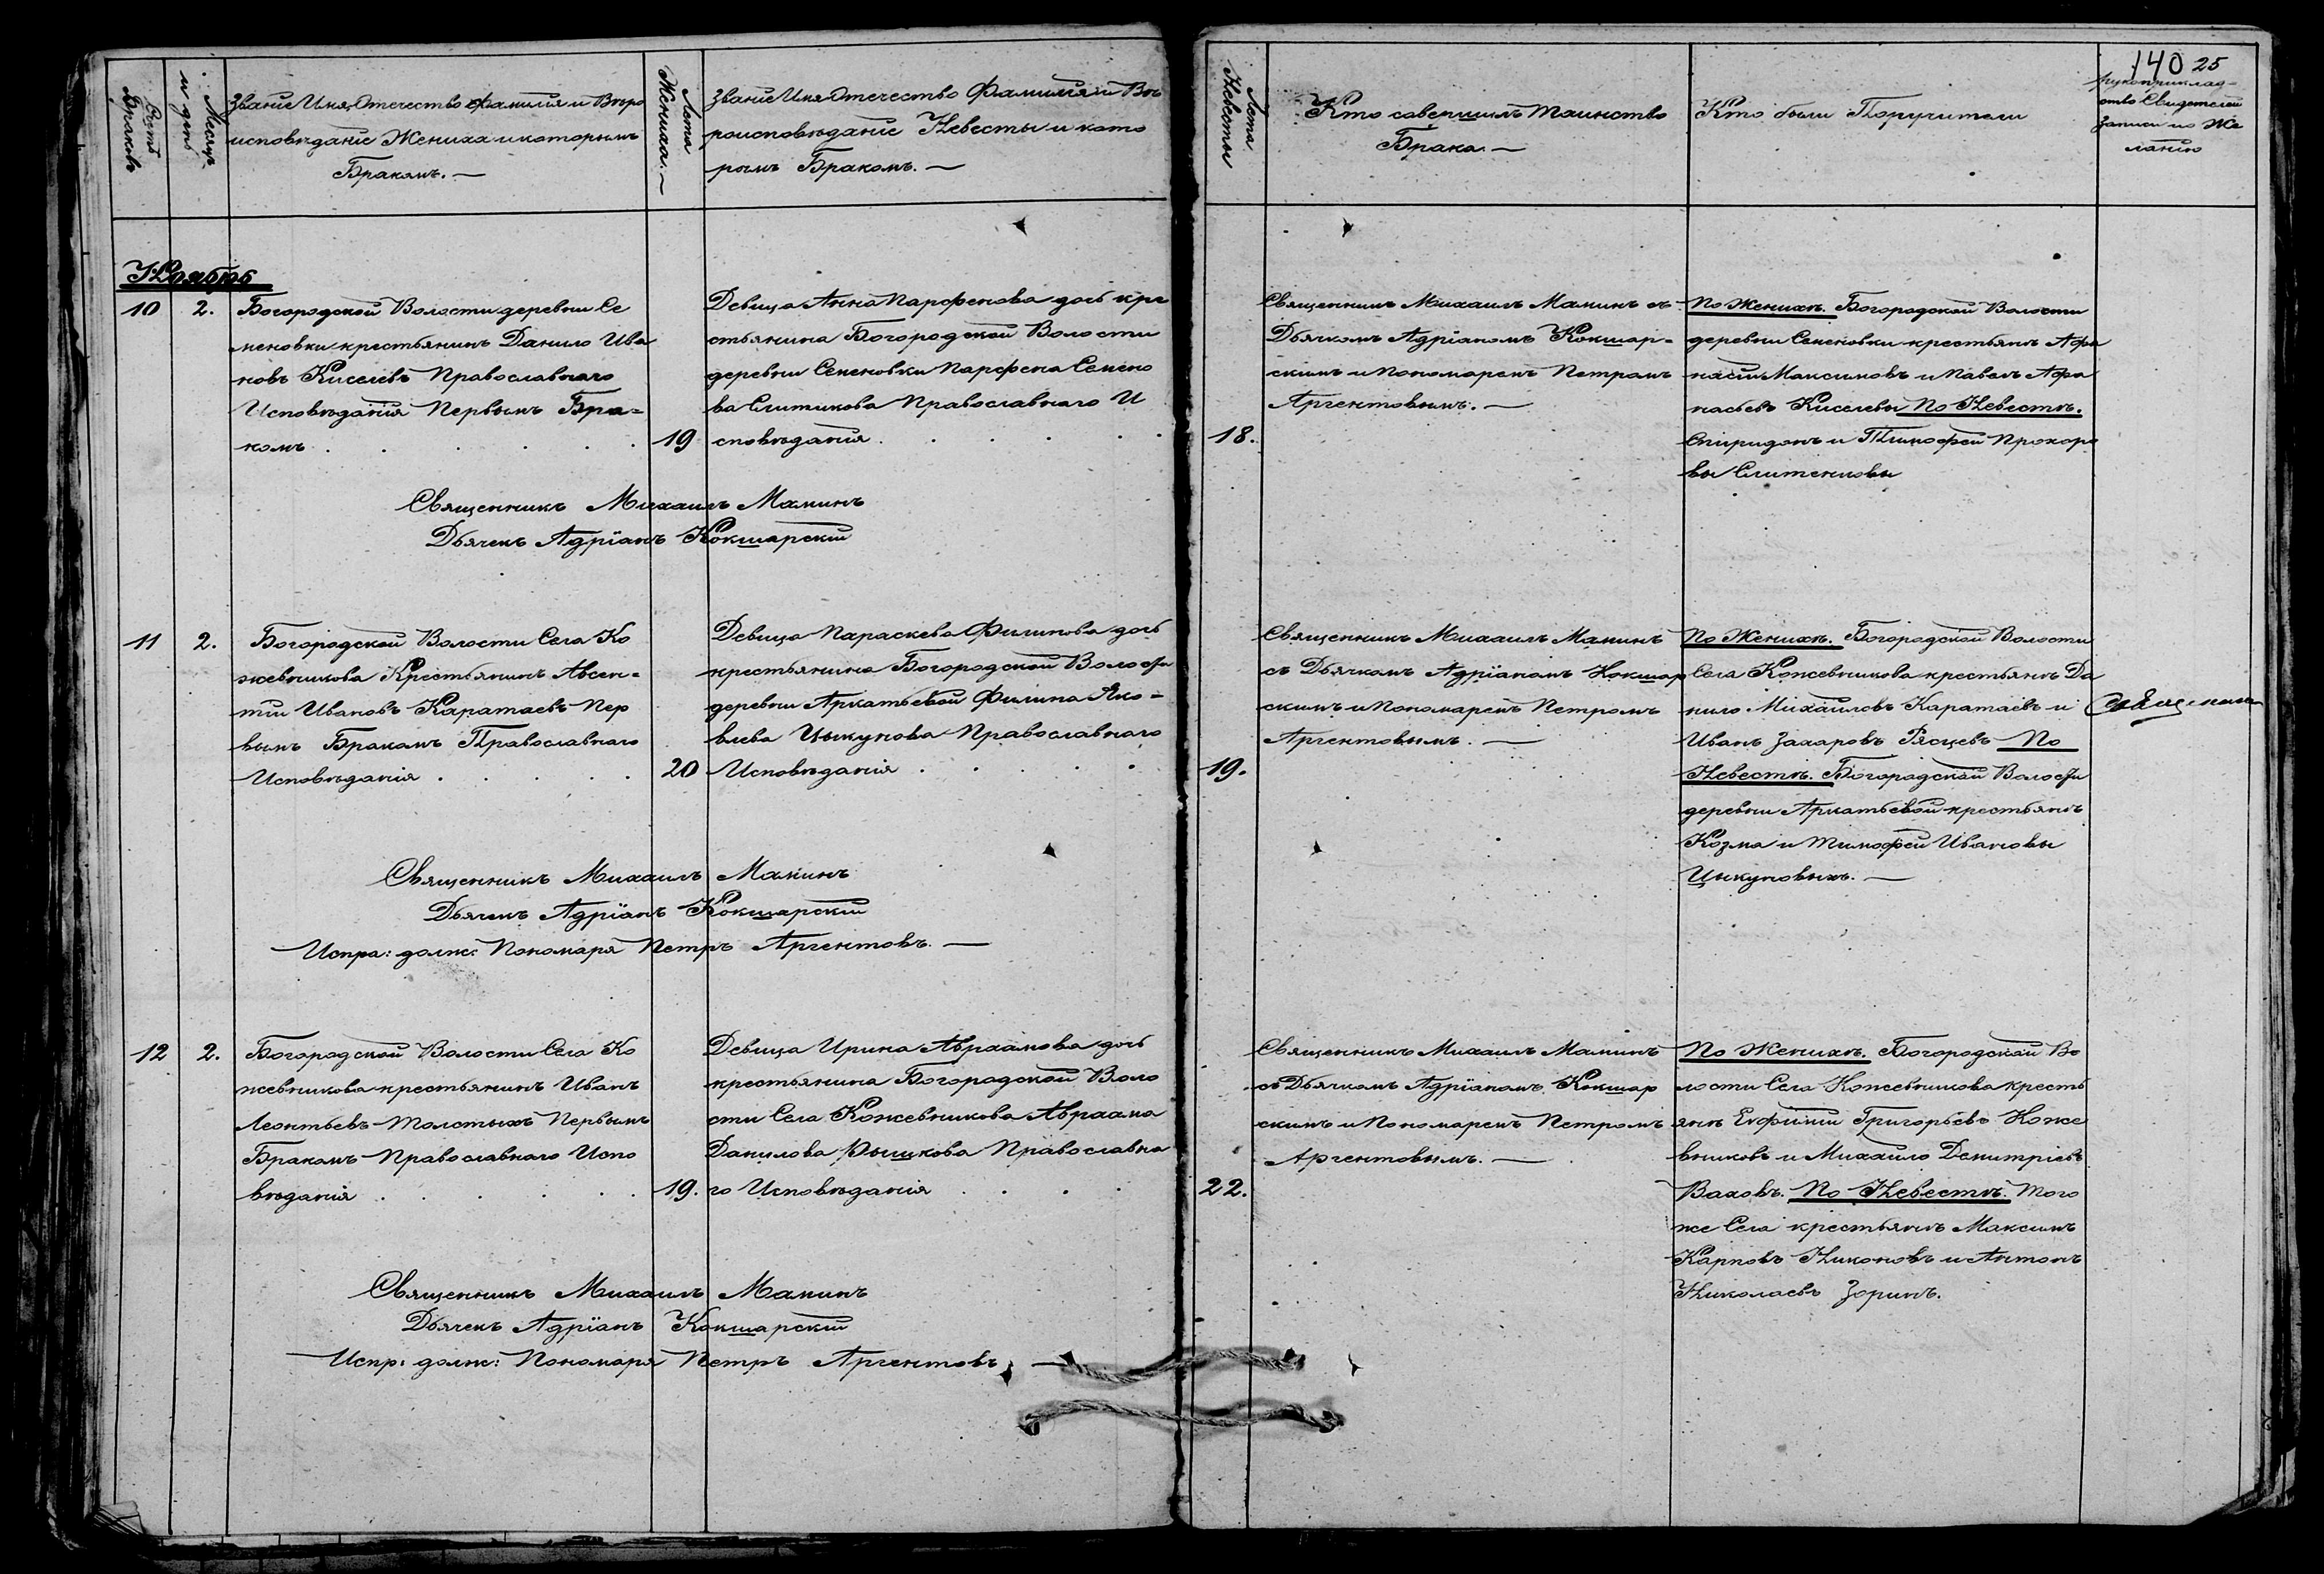 140 25
Счетъ Браковъ
Месяцъ и день
Званіе Имя, Отечество Фамилія и Веро
исповѣданіе Жениха и которымъ
Бракомъ. —
Лета Жениха. —
Званіе Имя Отечество Фамилія и Ве
роисповѣданіе Невесты и кото
рымъ Бракомъ. —
Лета Невесты
Кто совершилъ таинство
Брака. —
Кто были Поручители
рукоприклад-
ство Свидетелей
записи по Же
ланію
Ноябрь
10 2.
Богородской Волости деревни Се
меновки крестьянинъ Данило Ива
новъ Киселевъ Православнаго
Исповѣданія Первымъ Бра=
комъ . . . . . .
19
Девица Анна Парфенова дочь кре
стьянина Богородской Волости
деревни Семеновки Парфена Семено
ва Слитикова Православнаго И
сповѣданія . . . . .
18.
Священникъ Михаилъ Маминъ съ
Дьячкомъ Адріаномъ Кокшар=
скимъ и Пономаремъ Петромъ
Аргентовымъ. —
По Женихѣ. Богородской Волости
деревни Семеновки крестьянъ Афа
насій Максимовъ и Павелъ Афа
насьевъ Киселевы По Невестѣ.
Спиридонъ и Тимофей Прохоро
вы Слитенковы
Священникъ Михаилъ Маминъ
Дьячекъ Адріанъ Кокшарскій
11 2.
Богородской Волости Села Ко
жевникова Крестьянинъ Авсен=
тій Ивановъ Каратаевъ Пер
вымъ Бракамъ Православнаго
Исповѣданія . . . . .
20
Девица Параскева Филипова дочь
крестьянина Богородской Волости
деревни Аркатьевой Филипа Яко=
влева Цыкунова Православнаго
Исповѣданія . . . . .
19.
Священникъ Михаилъ Маминъ
съ Дьячкомъ Адріаномъ Кокшар
скимъ и Пономаремъ Петромъ
Аргентовымъ. —
По Женихѣ. Богородской Волости
Села Кожевникова крестьянъ Да
нило Михайловъ Каратаевъ и
Иванъ Захаровъ Рясцевъ По
Невестѣ. Богородской Волости
деревни Аркатьевой крестьянъ
Козма и Тимофей Ивановы
Цыкуновыхъ. —
Священникъ Михаилъ Маминъ
Дьячекъ Адріанъ Кокшарскій
Испра: долж: Пономаря Петръ Аргентовъ. —
12 2.
Богородской Волости Села Ко
жевникова крестьянинъ Иванъ
Леонтьевъ Толстыхъ Первымъ
Бракамъ Православнаго Испо
вѣданія . . . . . .
19.
Девица Ирина Авраамова дочь
крестьянина Богородской Воло
сти Села Кожевникова Авраама
Данилова Рышкова Православна
го Исповѣданія . . . .
22.
Священникъ Михаилъ Маминъ
съ Дьячкамъ Адріаномъ Кокшар
скимъ и Пономаремъ Петромъ
Аргентовымъ. —
По Женихѣ. Богородской Во
лости Села Кожевникова кресть
янъ Евфимій Григорьевъ Коже
вниковъ и Михайло Демитріевъ
Ваховъ. По Невестѣ. Того
же Села крестьянъ Максимъ
Карповъ Никоновъ и Антонъ
Николаевъ Зоринъ.
Священникъ Михаилъ Маминъ
Дьячекъ Адріанъ Кокшарскій
Испр: долж: Пономаря Петръ Аргентовъ. —